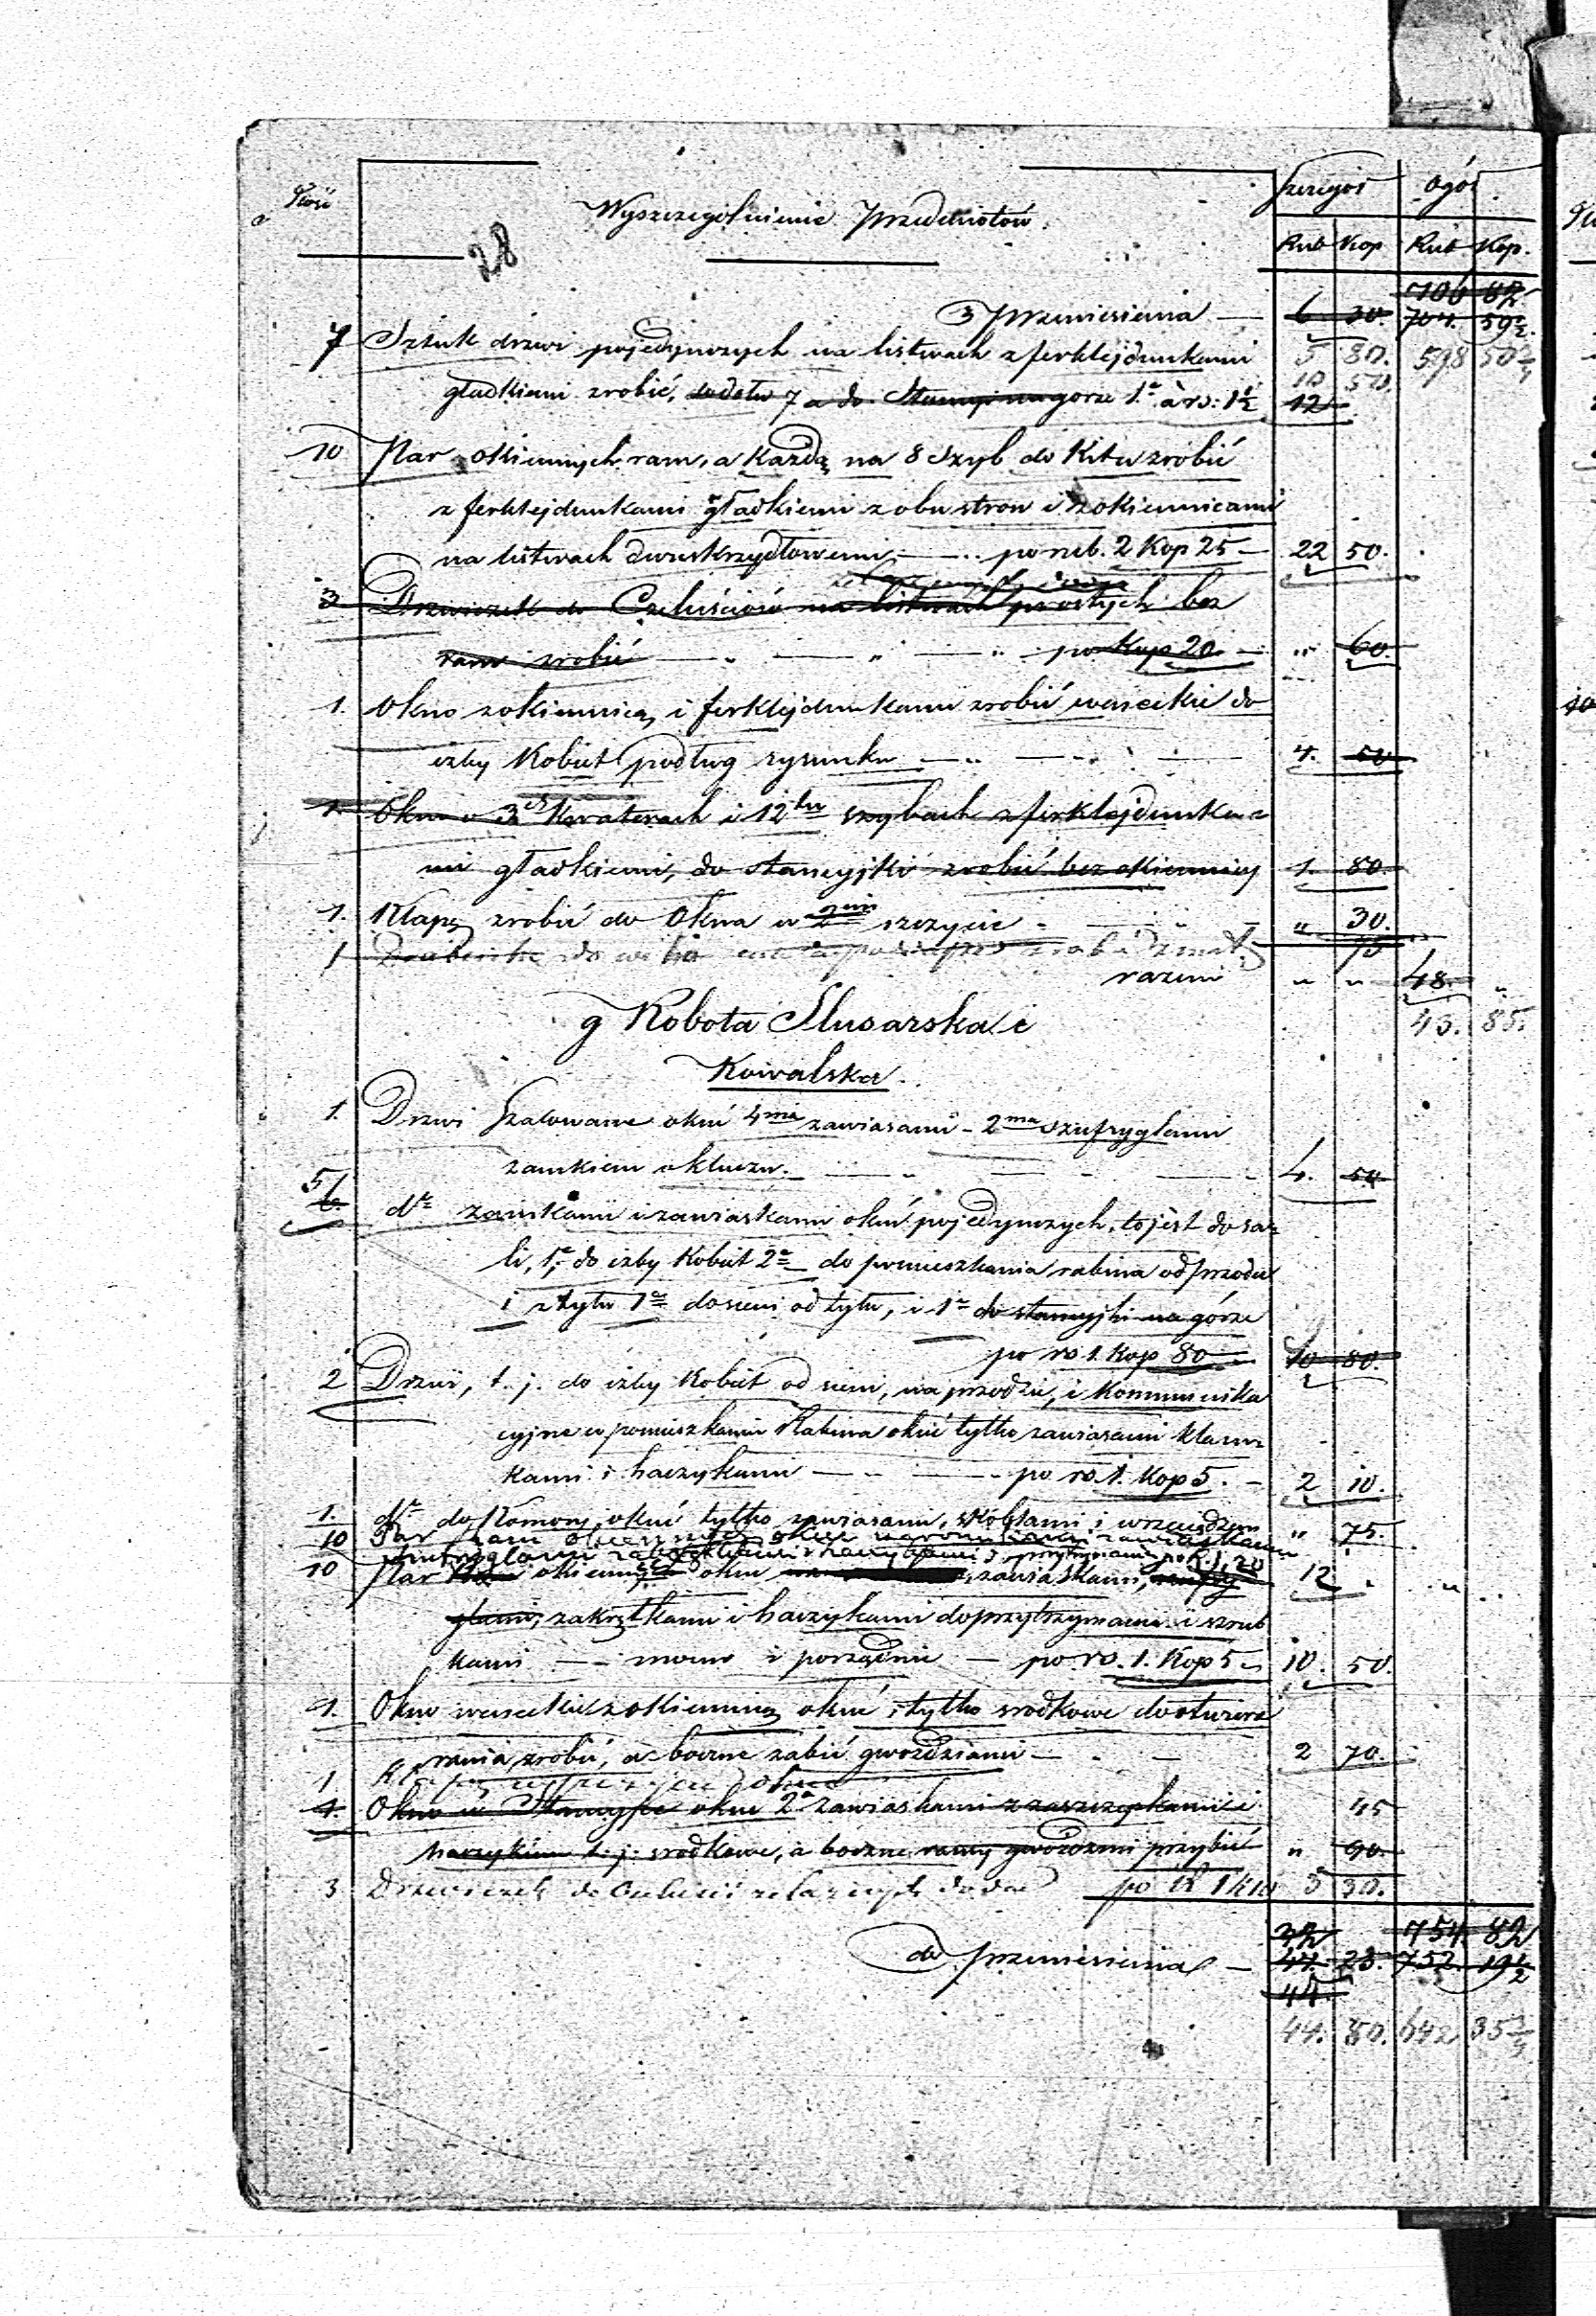 Ilość
Wyszczególnienie Przedmiotów.
Szczegół
Ogół
28
Rub Kop Rub Kop.
706 82
z przeniesienia — 6 30. 704. 59½
7 Sztuk drzwi pojedynczych na listwach z ferklejdunkami 5 80. 598 50¾
gładkiemi zrobić, na dole 7 a do Stancyi na górze 1ª à rs: 1½ 10 50. 12
10 Par okiennych ram, a każdą na 8 szyb do Kitu zrobić
z ferklejdunkami gładkiemi z obu stron i z okiennicami
na listwach dwuskrzydłowemi — po rub. 2 Kop 25 — 22 50.
3 Drzwiczek do Czeluściów na listwach prostych bez
ram zrobić — " — " — " — po Kop 20 — " 60.
1. Okno z okiennicą i ferklejdunkami zrobić weneckie do
izby Kobiet podług rysunku — 4. 50
1. Okno o 3ch Kwaterach i 12tu szybach z ferklejdunka=
mi gładkiemi, do stancyjki zrobić bez okiennicy 1. 80.
1. Klapę zrobić do Okna w szczycie — " 30.
1 75
razem " " 48. "
43. 85.
g Robota Slusarska i
Kowalska.
1. Drzwi Szalowane okuć 4ma zawiasami – 2ma szufryglami
zamkiem o kluczu. — 4. 50
5/6. dto zamkami i zawiaskami okuć pojedynczych, to jest do sa=
li, 1e do izby Kobiet 2e do pomieszkania rabina od przodu
i z tyłu 1e do sieni od tyłu, i 1e do stancyjki na górze
po rs 1. Kop 80 — 10 80.
2 Drzwi, t. j. do izby Kobiet od sieni, na przodzie, i Kommunika
cyjne w pomieszkaniu Rabina okuć tylko zawiasami klam=
kami i haczykami — po rs. 1. Kop 5. — 2 10.
1. dto do Komory okuć tylko zawiasami, skoblami i wrzeciądzem " 75.
10 Par ram okiennych okuć narożnikami zawiaskami
szufryglami haczykami do przytrzymania po R. 1, 20
10 Par okiennic okuć zawiaskami, szufry 12 " "
glami, zakrętkami i haczykami do przytrzymania i szrub
kami — mocno i porządnie — po rs. 1. Kop 5 — 10. 50.
1. Okno weneckie z okiennicą okuć, tylko srodkowe do otwiera
rania zrobić, a boczne zabić gwoździami — 2 70.
1 Klapę
1. Okno w Stancyjce okuć 2a zawiaskami z zaszczepkami i 45
haczykiem t. j. srodkowe, a boczne ramy gwoździmi przybić " 90.
3 Drzwiczek do Czeluści żelaznych dodać po R 1 K10 3 30.
do przeniesienia — 32 754. 82
47. 25. 752. 19½
44.
44. 80. 642 35¾